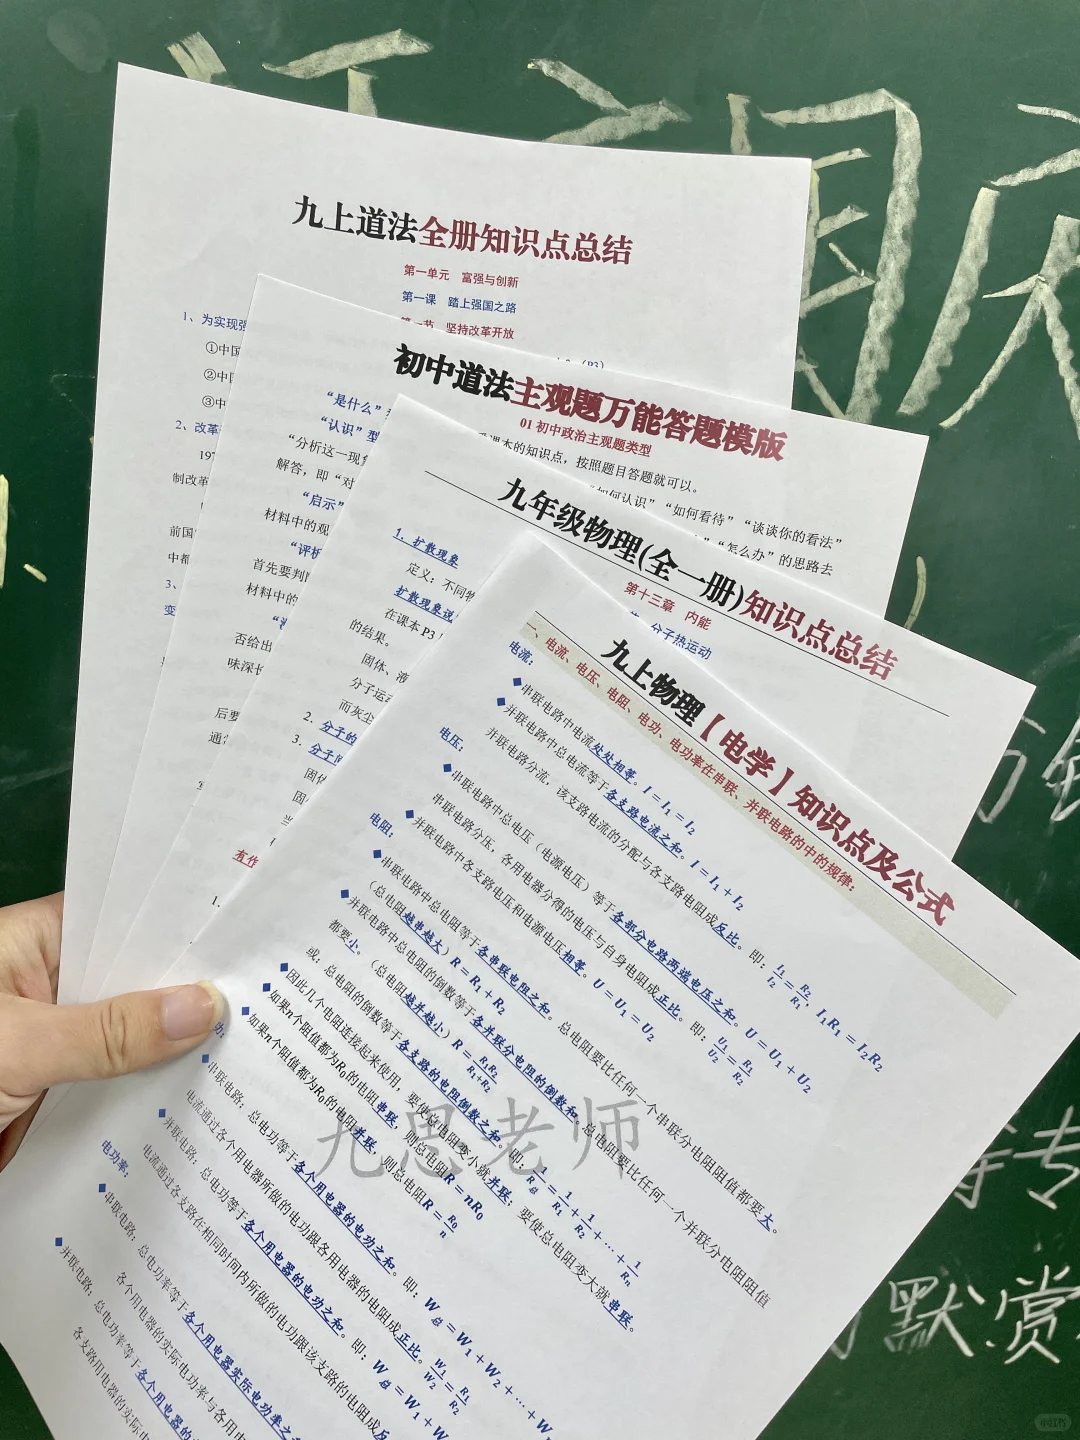 九上道法全册知识点总结
第一单元 富强与创新
第一课 踏上强国之路
坚持改革开放
1、为实现强
(P3)
①中国
②中
③中
2、改革
197
制改革
前国
中都
3、
变
初中道法主观题万能答题模版
01 初中政治主观题类型
“是什么”
课本的知识点，按照题目答题就可以。
“认识”型
“如何认识”“如何看待”“谈谈你的看法”
“分析这一现象
“怎么办”的思路去
解答，即“对
“启示”
材料中的观
“评析
首先要判
材料中的
否给出
味深长
后要
通常
九年级物理(全一册)知识点总结
第十三章 内能
分子热运动
1. 扩散现象
定义：不同物
扩散现象说
在课本 P3
的结果。
固体、液
分子运动
而灰尘
2. 分子的
3. 分子间
固体
固
当
有作
1.
九上物理【电学】知识点及公式
一、电流、电压、电阻、电功、电功率在串联、并联电路的中的规律：
电流：
串联电路中电流处处相等。I = I₁ = I₂
并联电路中总电流等于各支路电流之和。I = I₁ + I₂
并联电路分流，该支路电流的分配与各支路电阻成反比。即：I₁/I₂ = R₂/R₁，I₁R₁ = I₂R₂
电压：
串联电路中总电压（电源电压）等于各部分电路两端电压之和。U = U₁ + U₂
串联电路分压，各用电器分得的电压与自身电阻成正比。即：U₁/U₂ = R₁/R₂
并联电路中各支路电压和电源电压相等。U = U₁ = U₂
电阻：
串联电路中总电阻等于各串联电阻之和。总电阻要比任何一个串联分电阻阻值都要大。
（总电阻越串越大）R = R₁ + R₂
并联电路中总电阻的倒数等于各并联分电阻的倒数和。总电阻要比任何一个并联分电阻阻值
都要小。（总电阻越并越小）R = R₁R₂/R₁+R₂
或：总电阻的倒数等于各支路的电阻倒数之和。即：1/R总 = 1/R₁ + 1/R₂ + ⋯ + 1/Rₙ
因此几个电阻连接起来使用，要使总电阻变小就并联；要使总电阻变大就串联。
如果n个阻值都为R₀的电阻串联，则总电阻R = nR₀
如果n个阻值都为R₀的电阻并联，则总电阻R = R₀/n
功：
串联电路：总电功等于各个用电器的电功之和。即：W总 = W₁ + W₂ + ⋯ + W
电流通过各个用电器所做的电功跟各用电器的电阻成正比。W₁/W₂ = R₁/R₂
并联电路：总电功等于各个用电器的电功之和。即：W总 = W₁ + W
电流通过各支路在相同时间内所做的电功跟该支路的电阻成反
电功率：
串联电路：总电功率等于各个用电器实际电功率之
各个用电器的实际电功率与各用电
并联电路：总电功率等于各个用电器的
各支路用电器的实际
九思老师
专
默赏
小红书